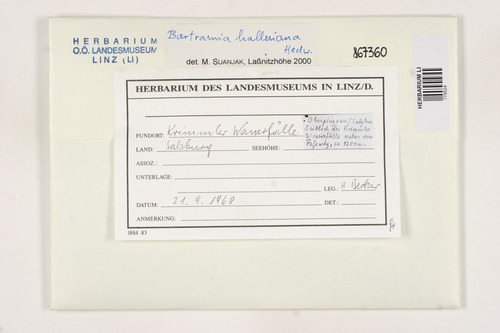 HERBARIUM
O.Ö. LANDESMUSEUM
LINZ (LI)
Bartramia halleriana
Hedw.
det. M. SUANJAK, Laßnitzhöhe 2000
867360
HERBARIUM LI
HERBARIUM DES LANDESMUSEUMS IN LINZ/D.
FUNDORT: Krimmler Wasserfälle
LAND: Salzburg SEEHÖHE:
Oberpinzgau/Salzburg
südlich der Krimmler
Wasserfälle
ASSOZ.:
UNTERLAGE:
LEG.: H. Becker
DATUM: 21. 9. 1968 DET.:
ANMERKUNG:
1884 83